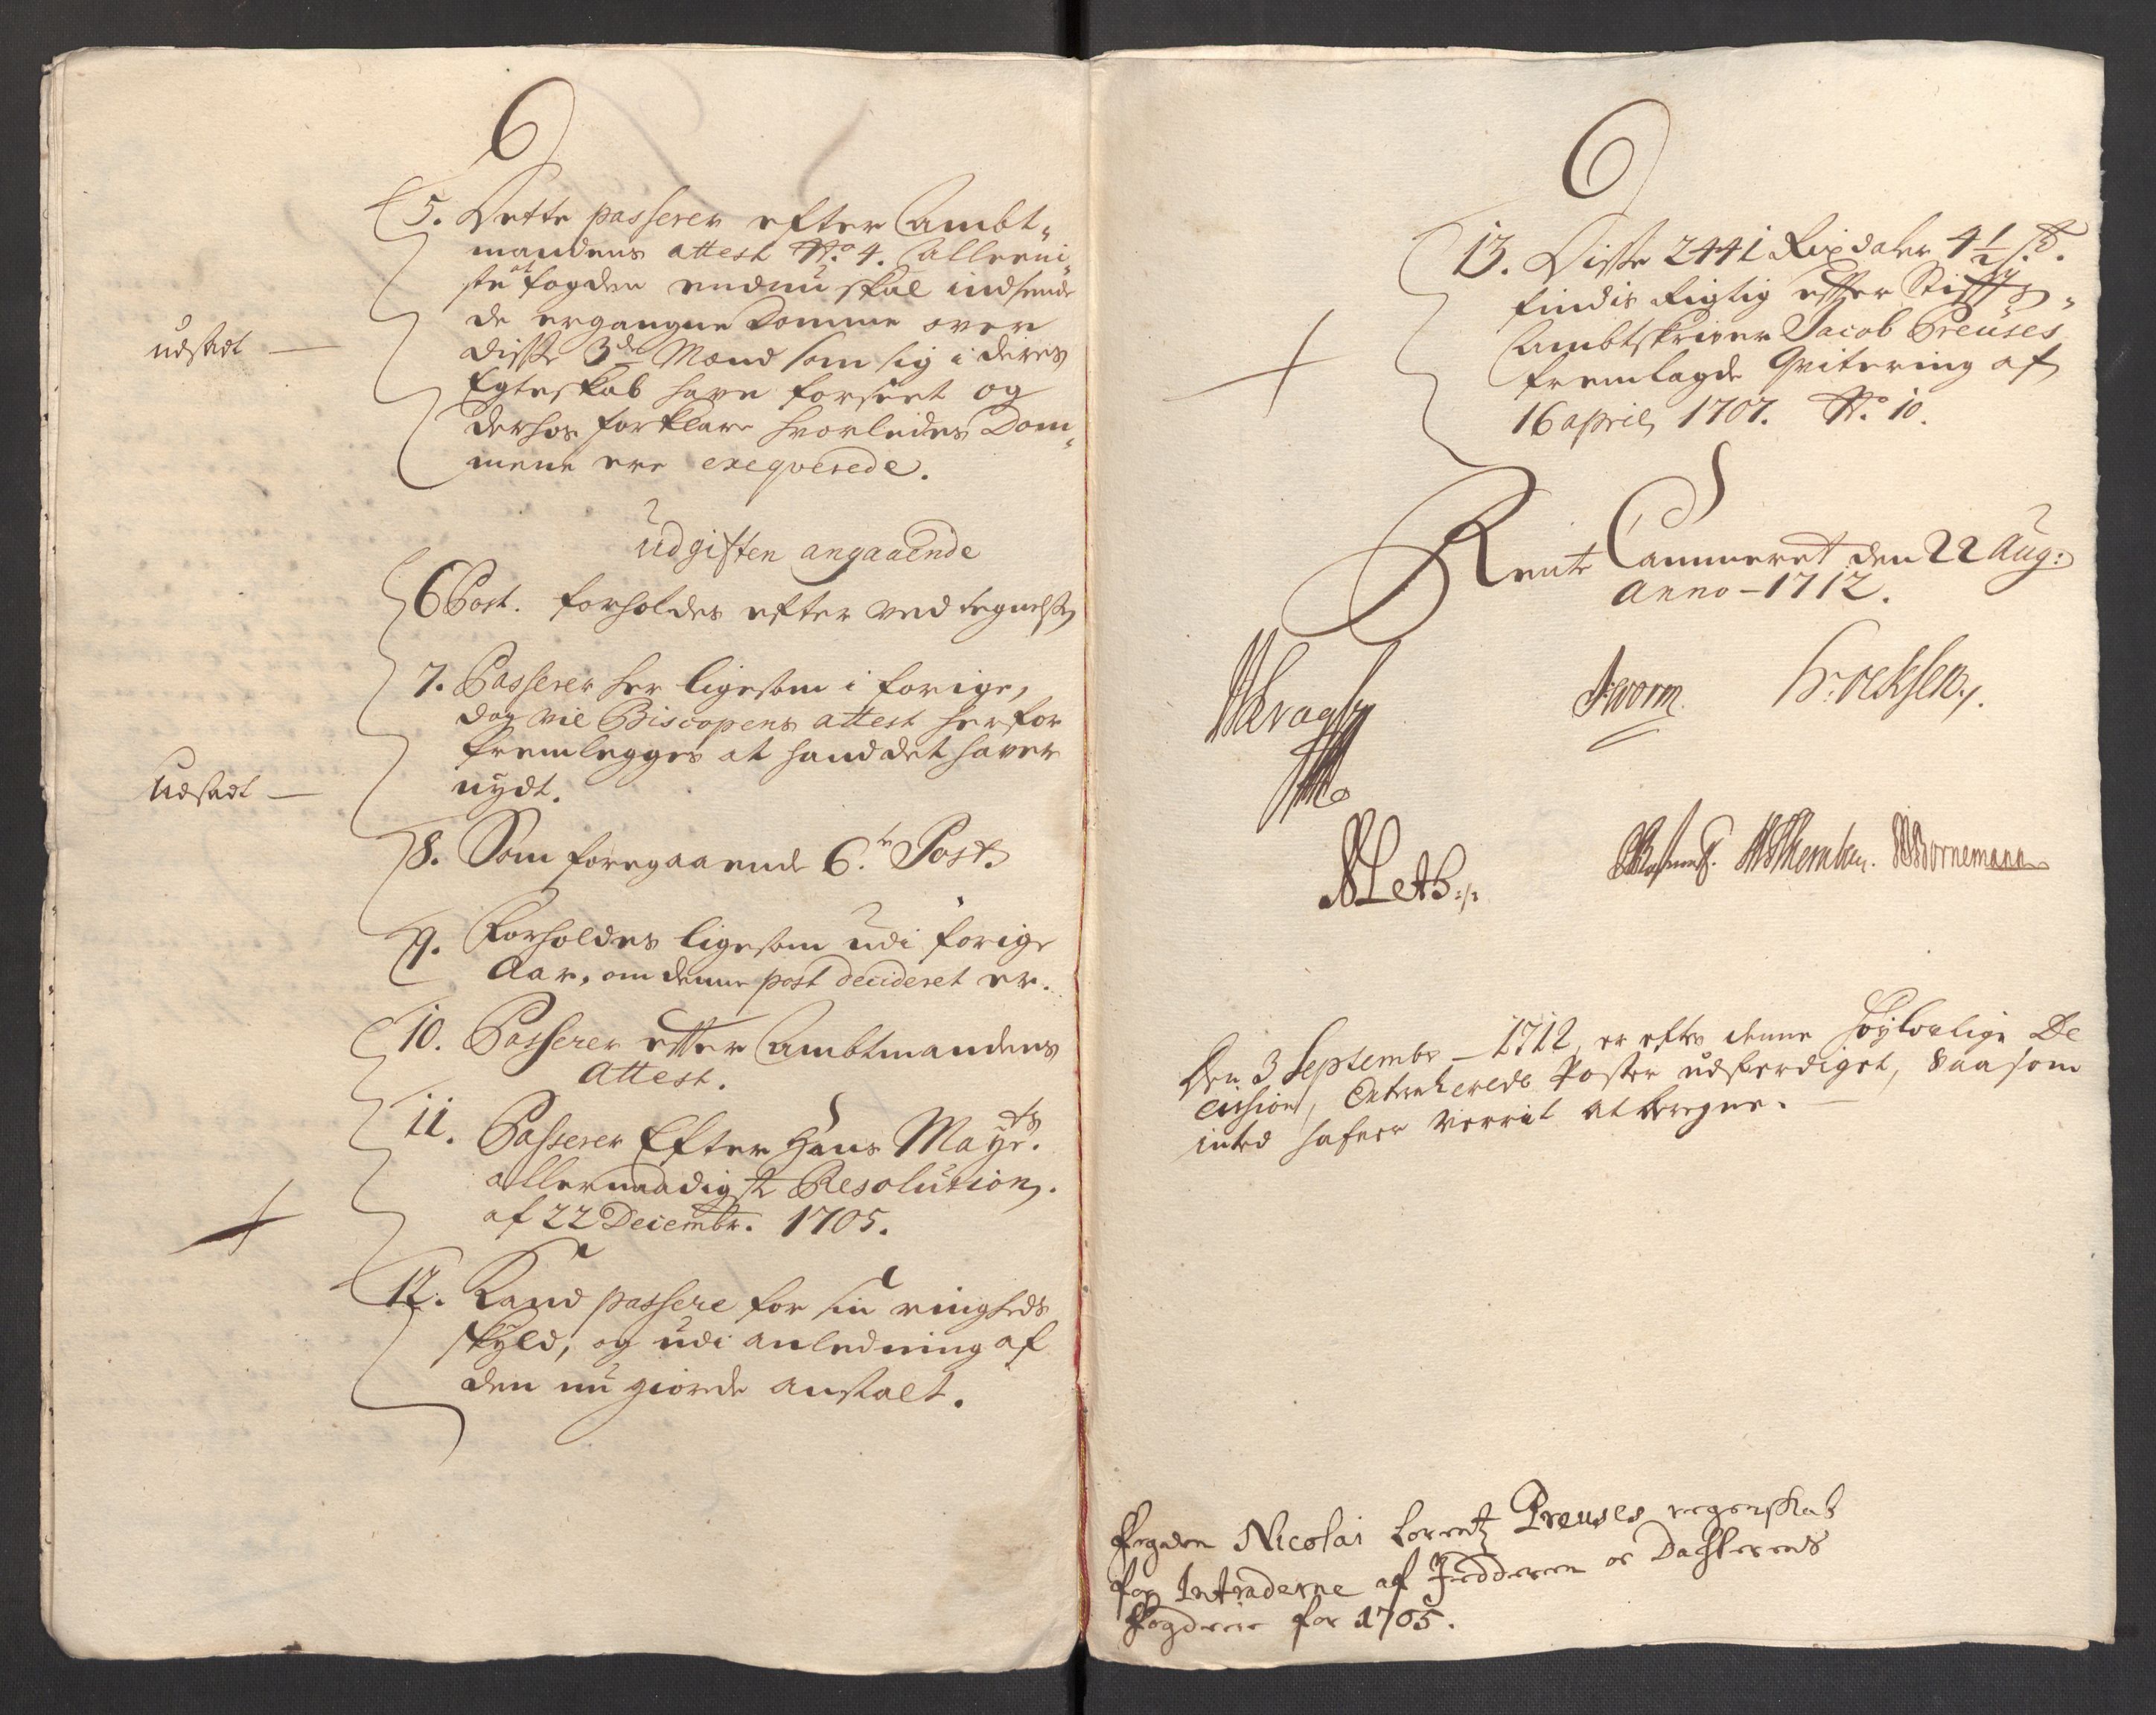 5. Dette passerer efter Ambt-
mandens attest No. 4. alleeni-
ste at fogden endnu skal indsende
de ergangne Domme over
disse 3de Mænd som sig i deres
Egteskab have forseet og
derhos forklare hvorledes Dom-
mene ere exeqverede.
udstædt
udgiften angaaende
6 Post. forholdes efter ved tegnelsen
7. Passerer her ligesom i forige,
dog vil Biscopens attest herfor
fremlegges at hand det haver
nydt.
Udstædt
8. Som foregaaende 6.te Post.
9. Forholdes ligesom udi forige
Aar, om denne post decideret er.
10. Passerer efter Ambtmandens
Attest.
11. Passerer Efter Hans Mayts.
allernaadigste Resolution.
af 22 Decembr. 1705.
12. Kand passere for sin ringheds
skyld, og udi anledning af
den nu giorde anstalt.
13. Disse 2441 Rixdaler 4½ s.
findis Rigtig efter Stiffts-
Ambtskriver Jacob Preuses
fremlagde Qvitering af
16 april 1707. No. 10.
Rente Cammeret den 22 Aug:
Anno-1712.
Worm.
Leth
WBornemann
Den 3 Septembr - 1712, er efter denne høylovlige De
cission, Extraherede Poster udferdiget, saasom
inted hafuer verrit at beregne.
Fogden Nicolai Lorentz Preuses regenskab
for Intraderne af Jedderen oc Dahlerens
fogderie for 1705.